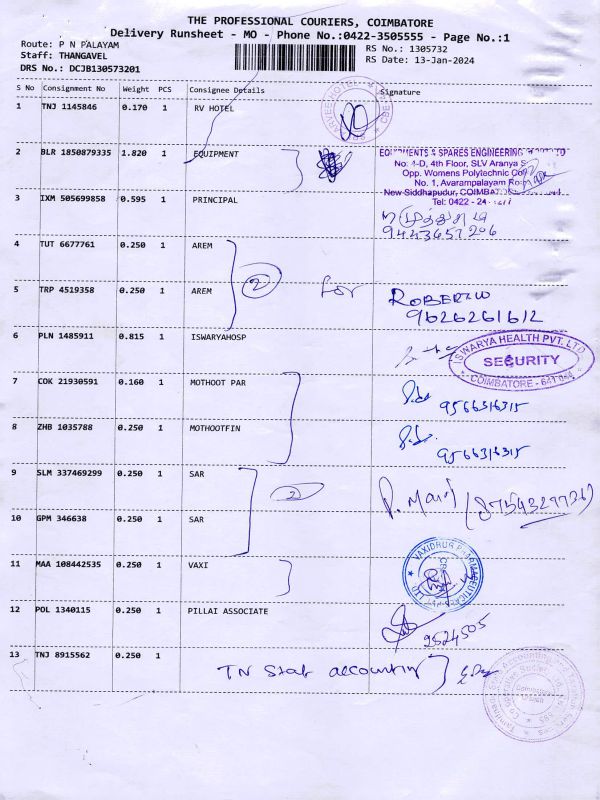 THE PROFESSIONAL COURIERS, COIMBATORE
Delivery Runsheet - MO - Phone No.:0422-3505555 - Page No.:1
Route: P N PALAYAM
Staff: THANGAVEL
DRS No.: DCJB130573201
RS No.: 1305732
RS Date: 13-Jan-2024
S No Consignment No Weight PCS Consignee Details Signature
1 TNJ 1145846 0.170 1 RV HOTEL
2 BLR 1850879335 1.820 1 EQUIPMENT
EQUIPMENTS & SPARES ENGINEERING
No: 4-D, 4th Floor, SLV Aranya
Opp. Womens Polytechnic
No. 1, Avarampalayam
New Siddhapudur,
Tel: 0422 - 24
3 IXM 505699858 0.595 1 PRINCIPAL
9443657206
4 TUT 6677761 0.250 1 AREM
2
5 TRP 4519358 0.250 1 AREM
for
9626261612
6 PLN 1485911 0.815 1 ISWARYAHOSP
ISWARYA HEALTH PVT. LTD
SECURITY
COIMBATORE
7 COK 21930591 0.160 1 MOTHOOT PAR
9566316315
8 ZHB 1035788 0.250 1 MOTHOOTFIN
9566316315
9 SLM 337469299 0.250 1 SAR
2
10 GPM 346638 0.250 1 SAR
11 MAA 108442535 1 0.250 VAXI
VAXIDRUG PHARMACEUTICALS
12 POL 1340115 0.250 1 PILLAI ASSOCIATE
9524505
13 TNJ 8915562 0.250 1
TN Stat accounting